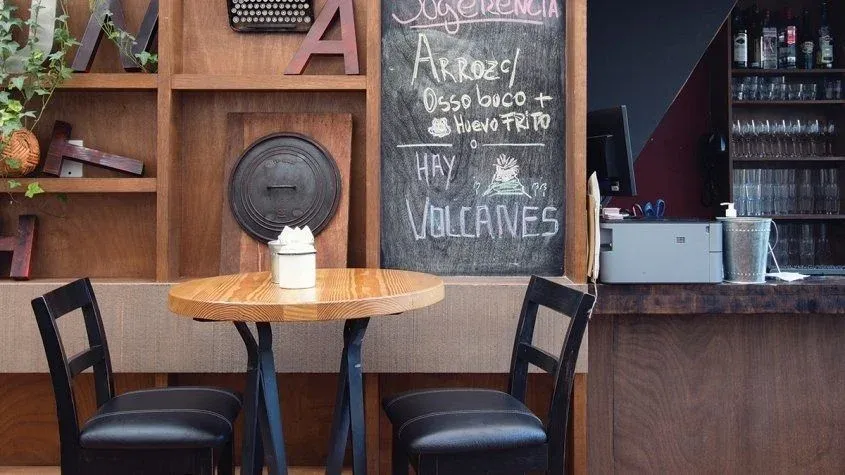 Sugerencia
Arroz c/
Osso buco +
Huevo FRITO
o
HAY
VOLCANES